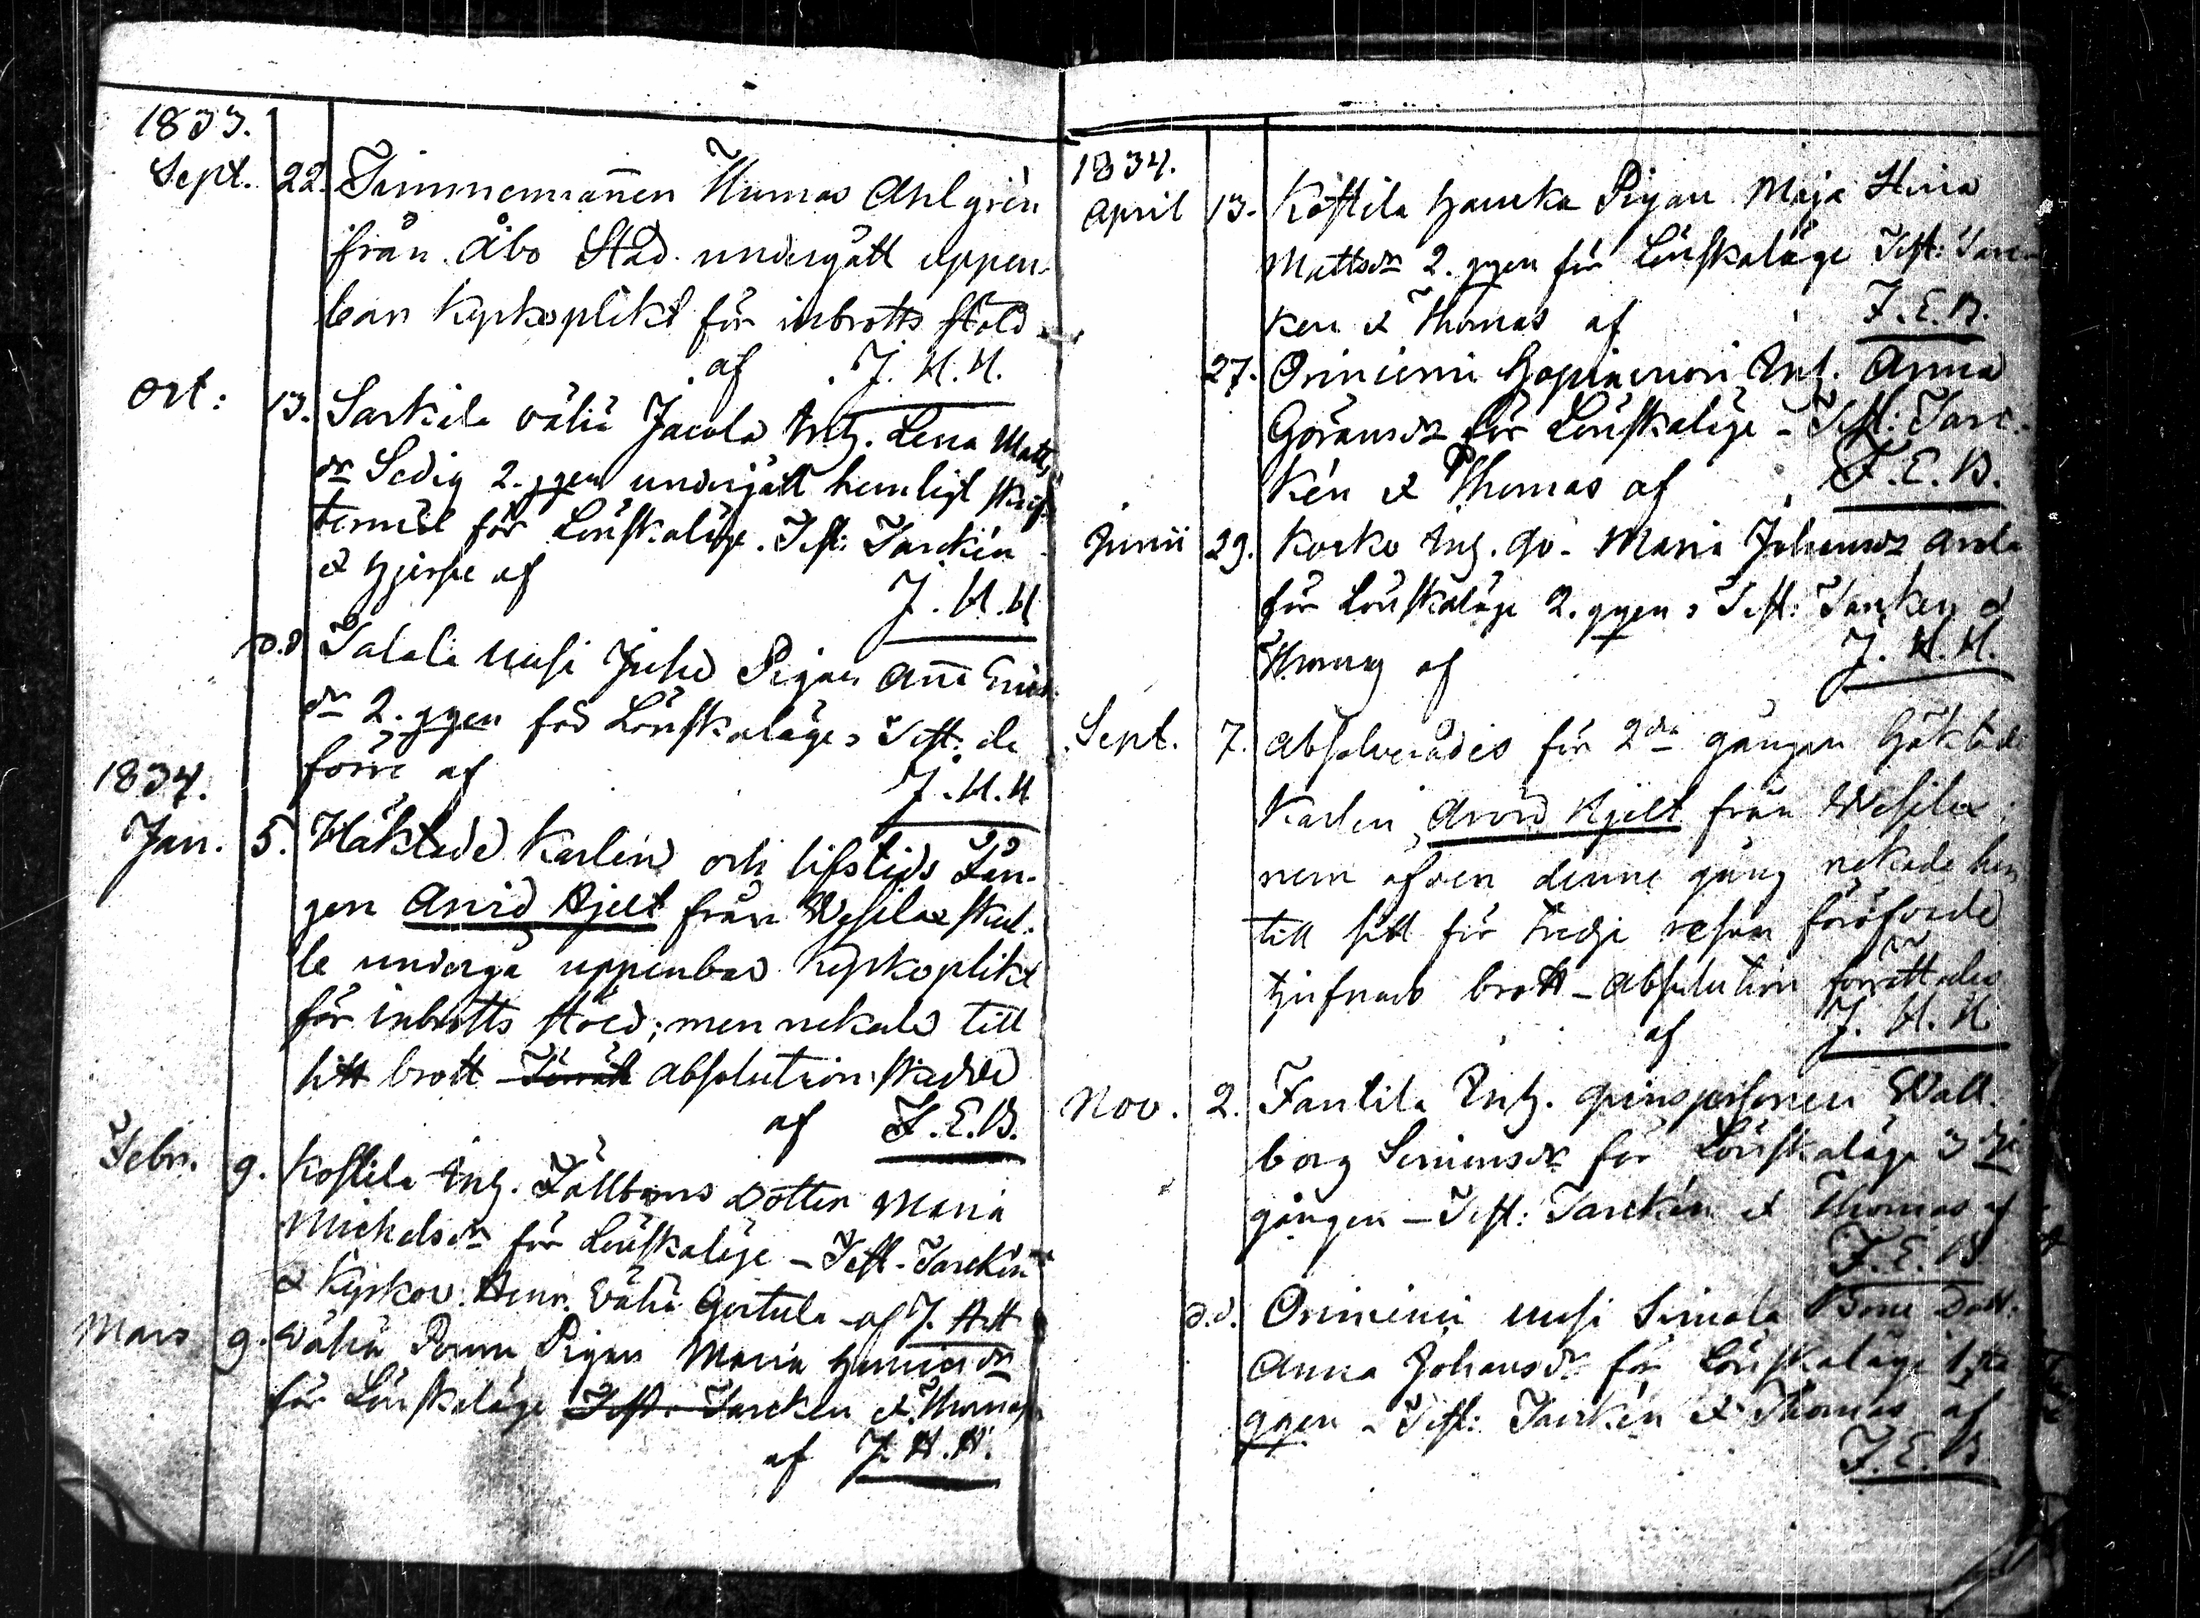 1833.
Sept. 22. Timmermannen Thomas Ahlgrén
från Åbo Stad undergått uppen-
bar Kyrkoplikt för inbrotts stöld
af J. H. H.
Oct: 13. Sarkila Vähä Jacola Inh. Lena Matts
dr Ledig 2. ggen undergått hemligt skrif-
termål för Lönskaläge. Test: Tarckén
& Hjerpe af
J. H. H
d.d Talala uusi Juho Pigan Anna Erics
dr 2. ggen för Lönskaläge, Test: de
förre af
J. H. H
1834.
Jan. 5. Häktade Karlen och lifstids Fån-
gen Arvid Hjelt från Wesilax skul-
le undergå uppenbar Kyrkoplikt
för inbrotts stöld; men nekade till
sitt brott absolution skedde
af F. E. B.
Febr. 9. Kostila Inh. Fältboms Dotter Maria
Michelsdr för Lönskaläge – Test. Tarckén
& Kyrkov. Henr. Vähä Gertula af J. H H
Mars 9. Vähä Pigan Maria Henricsdr
för Lönskaläge Test: Tarckén & Thomas
af J. H. H.
1834.
April 13. Kostila Pigan Maja Stina
Mattsdr 2. ggen för Lönskaläge Test: Tarc-
ken & Thomas af F. E. B.
27. Oriniemi Inh. Anna
Göransdr för Lönskaläge – Test: Tarc-
kén & Thomas af F. E. B.
Junii 29. Korko Inh. Qv. Maria Johansdr
för Lönskaläge 2. ggen, Test: Tarcken &
Thomas af J. H. H.
Sept. 7. Absolverades för 2dra gången Häktade
Karlen Arvid Hjelt från Wesilax;
men äfven denne gång nekade han
till sitt för tredje resan föröfvade
tjufnads brott – Absolution förrättades
af J. H. H.
Nov. 2. Fantila Inh. Qvinspersonen Wall-
borg Simonsdr för Lönskaläge 3 dje
gången – Test: Tarckén & Thomas af
F. E. B
d.d. Oriniemi uusi Simola Bone Dott.
Anna Johansdr för Lönskaläge 1sta
ggen – Test: Tarckén & Thomas af
F. E. B